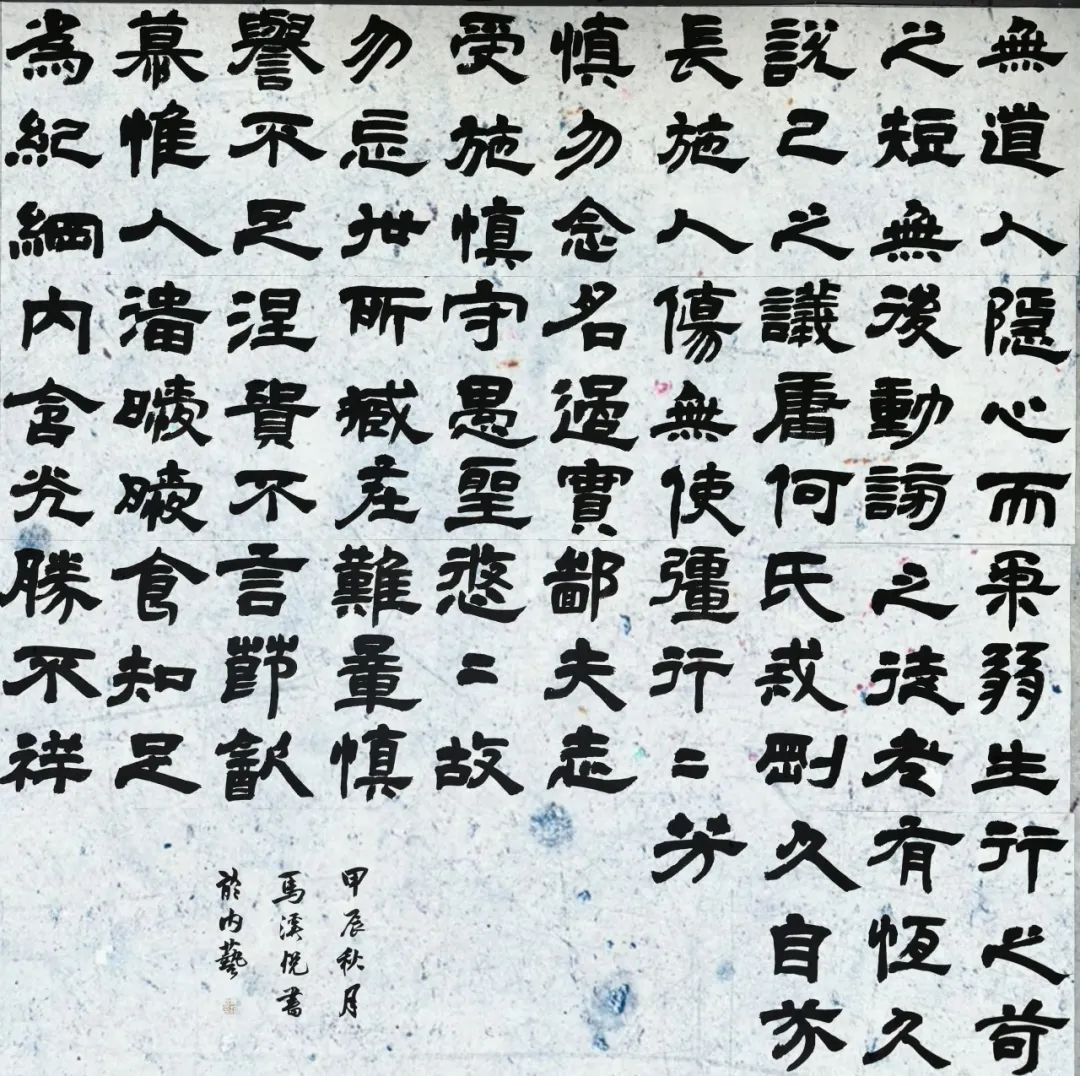 無道人
之短無
說己之
長施人
慎勿念
受施慎
勿忘世
譽不足
慕惟人
為紀綱
隱心而
後動謗
議庸何
傷無使
名過實
守愚聖
所臧在
涅貴不
淄曖曖
內含光
柔弱生
之徒老
氏戒剛
彊行二
鄙夫志
悠二故
難量慎
言節飲
食知足
勝不祥
行之苟
有恆久
久自芬
芳
甲辰秋月
馬溪書
於內藝